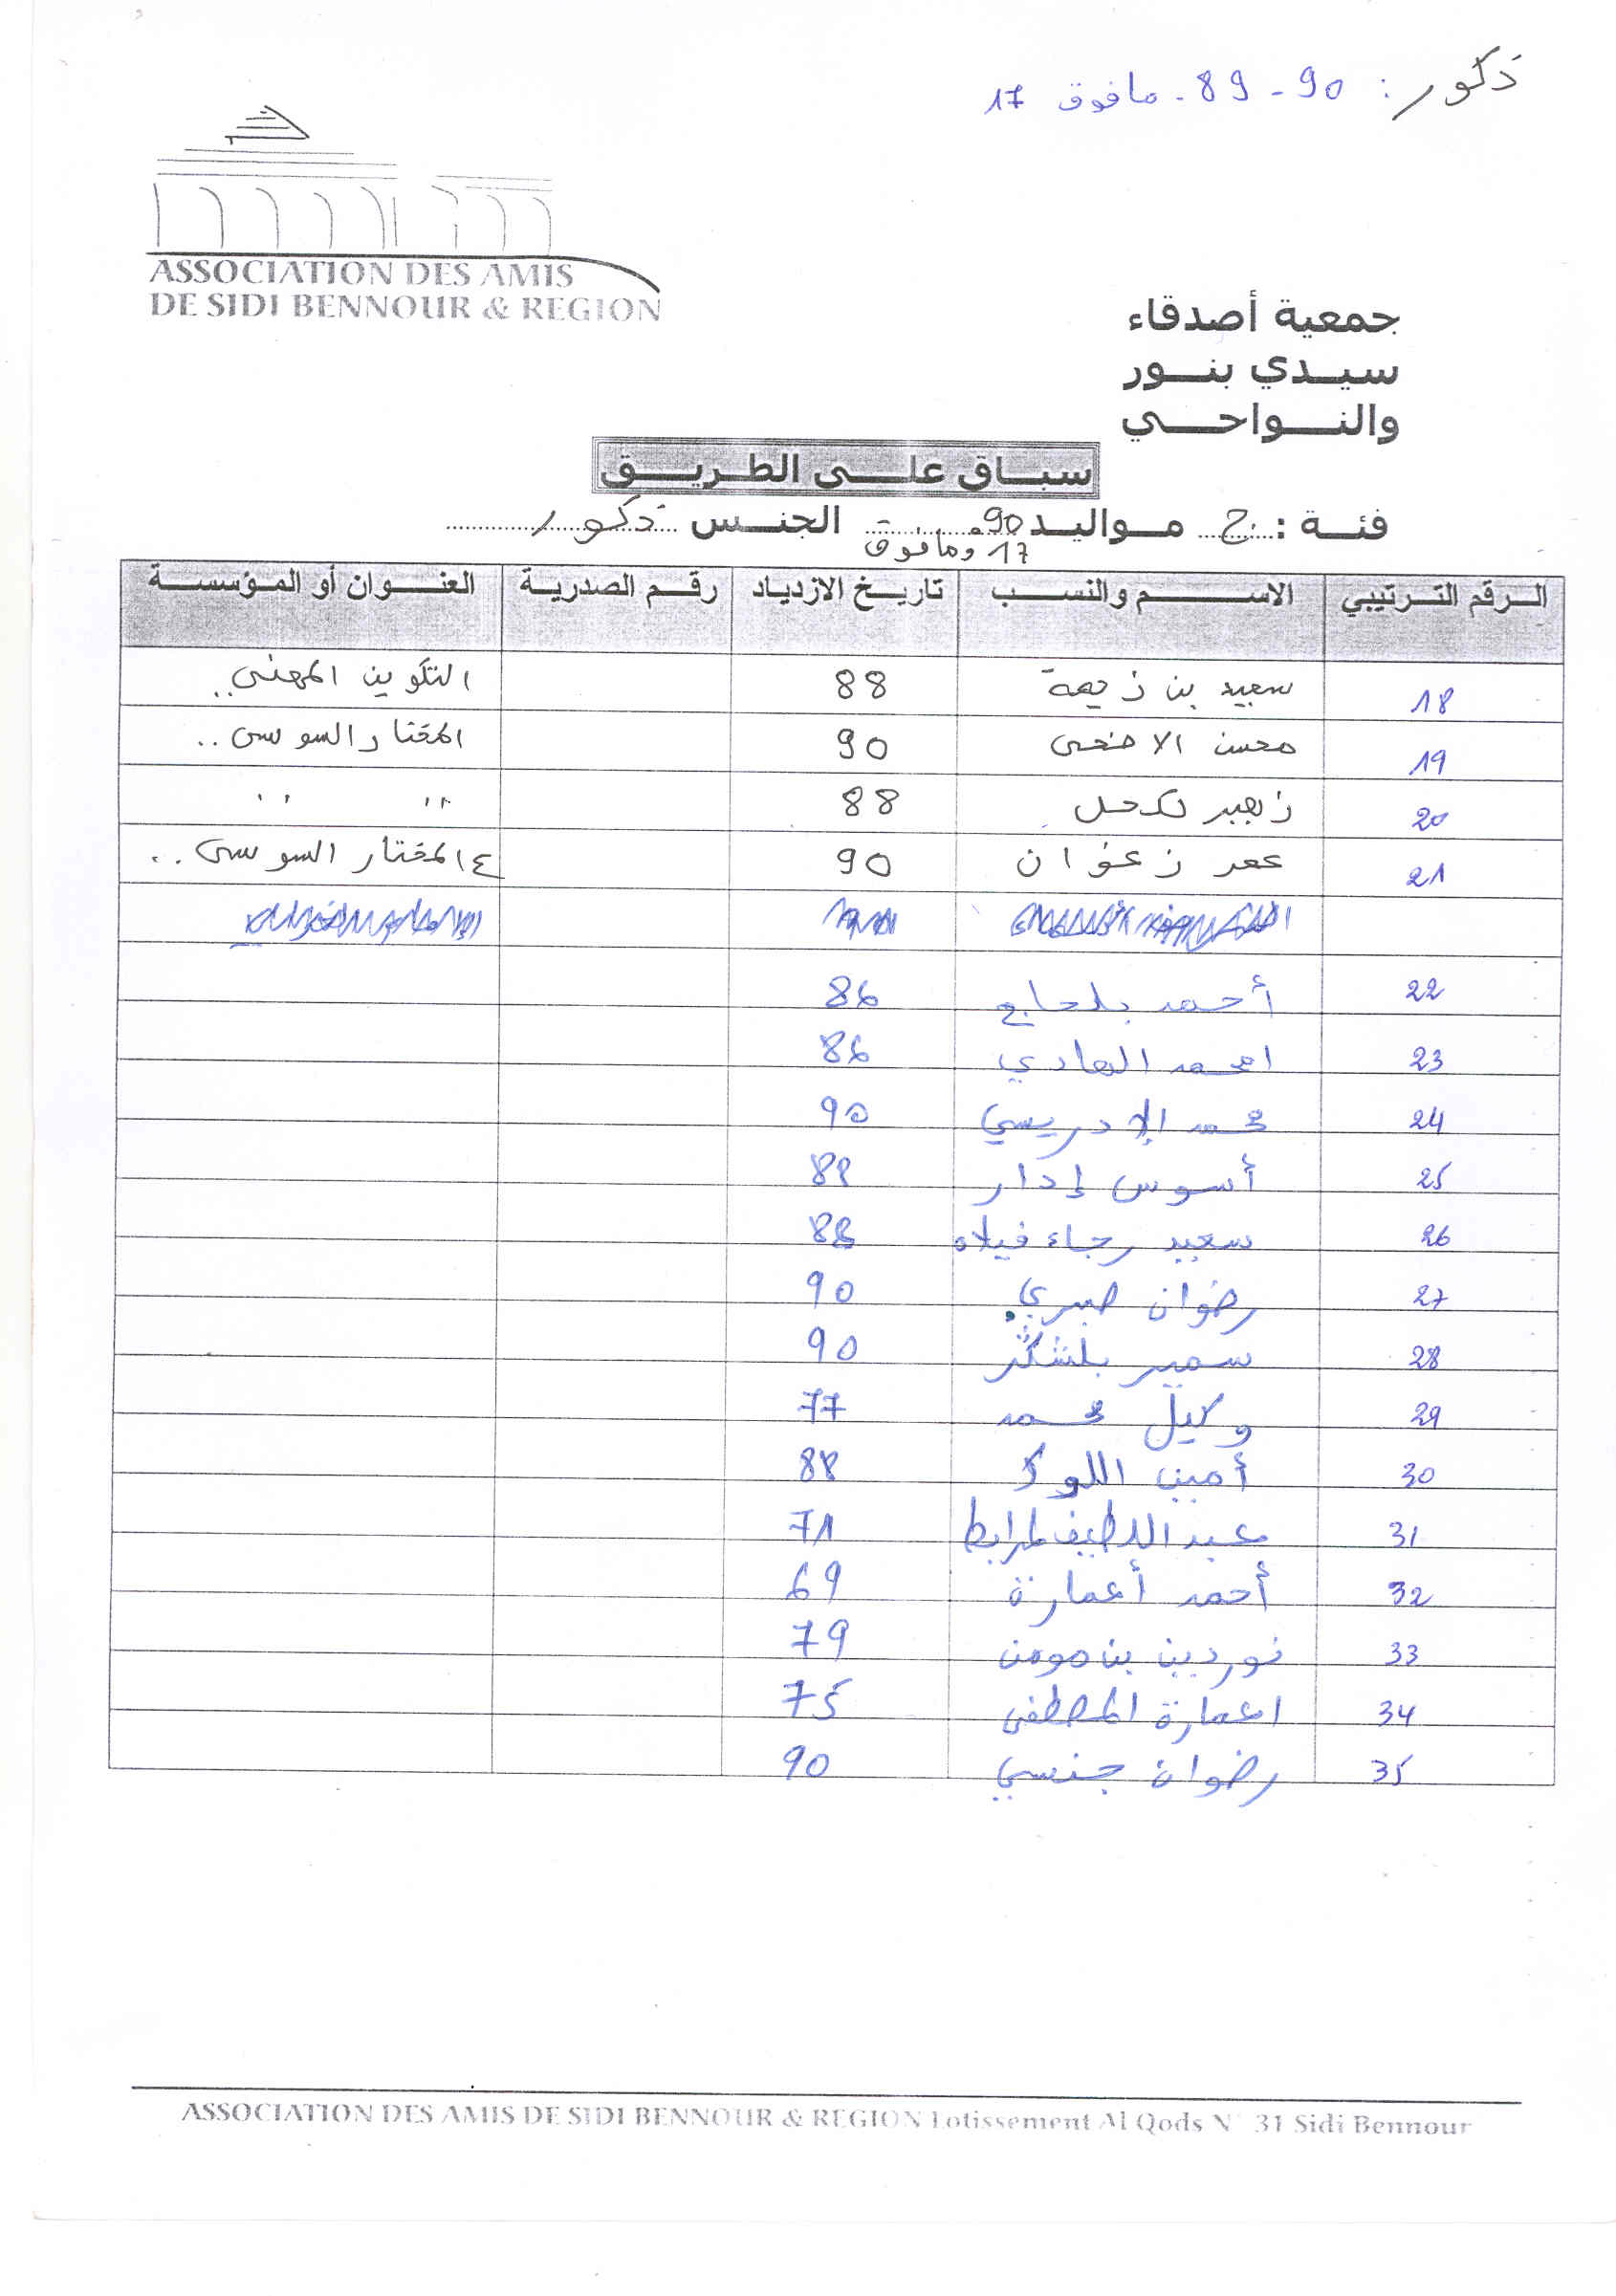 ذكور: 90 - 89 - مافوق 17
ASSOCIATION DES AMIS
DE SIDI BENNOUR & REGION
جمعية أصدقاء
سيدي بنور
والنواحي
سباق على الطريق
فئة : ج مواليد 90 الجنس ذكور
17 ومافوق
الرقم الترتيبي الاسم والنسب تاريخ الازدياد رقم الصدرية العنوان أو المؤسسة
18 سعيد بن زيمة 88 التكوين المهني..
19 محسن 90 المختار السوسي..
20 زهير لكحل 88 " "
21 عمر زغوان 90 ع المختار السوسي..
22 أحمد بلحاج 86
23 امحمد الهادي 86
24 محمد الإدريسي 90
25 أسوس إدار 88
26 سعيد رجاء فيلاه 88
27 رضوان صبري 90
28 سمير بلشكر 90
29 وكيل محمد 77
30 أمين 88
31 عبد اللطيف لمرابط 71
32 أحمد أعمارة 69
33 نوردين بن مومن 79
34 اعمارة المصطفى 75
35 رضوان جنسي 90
ASSOCIATION DES AMIS DE SIDI BENNOUR & REGION Lotissement Al Qods N° 31 Sidi Bennour